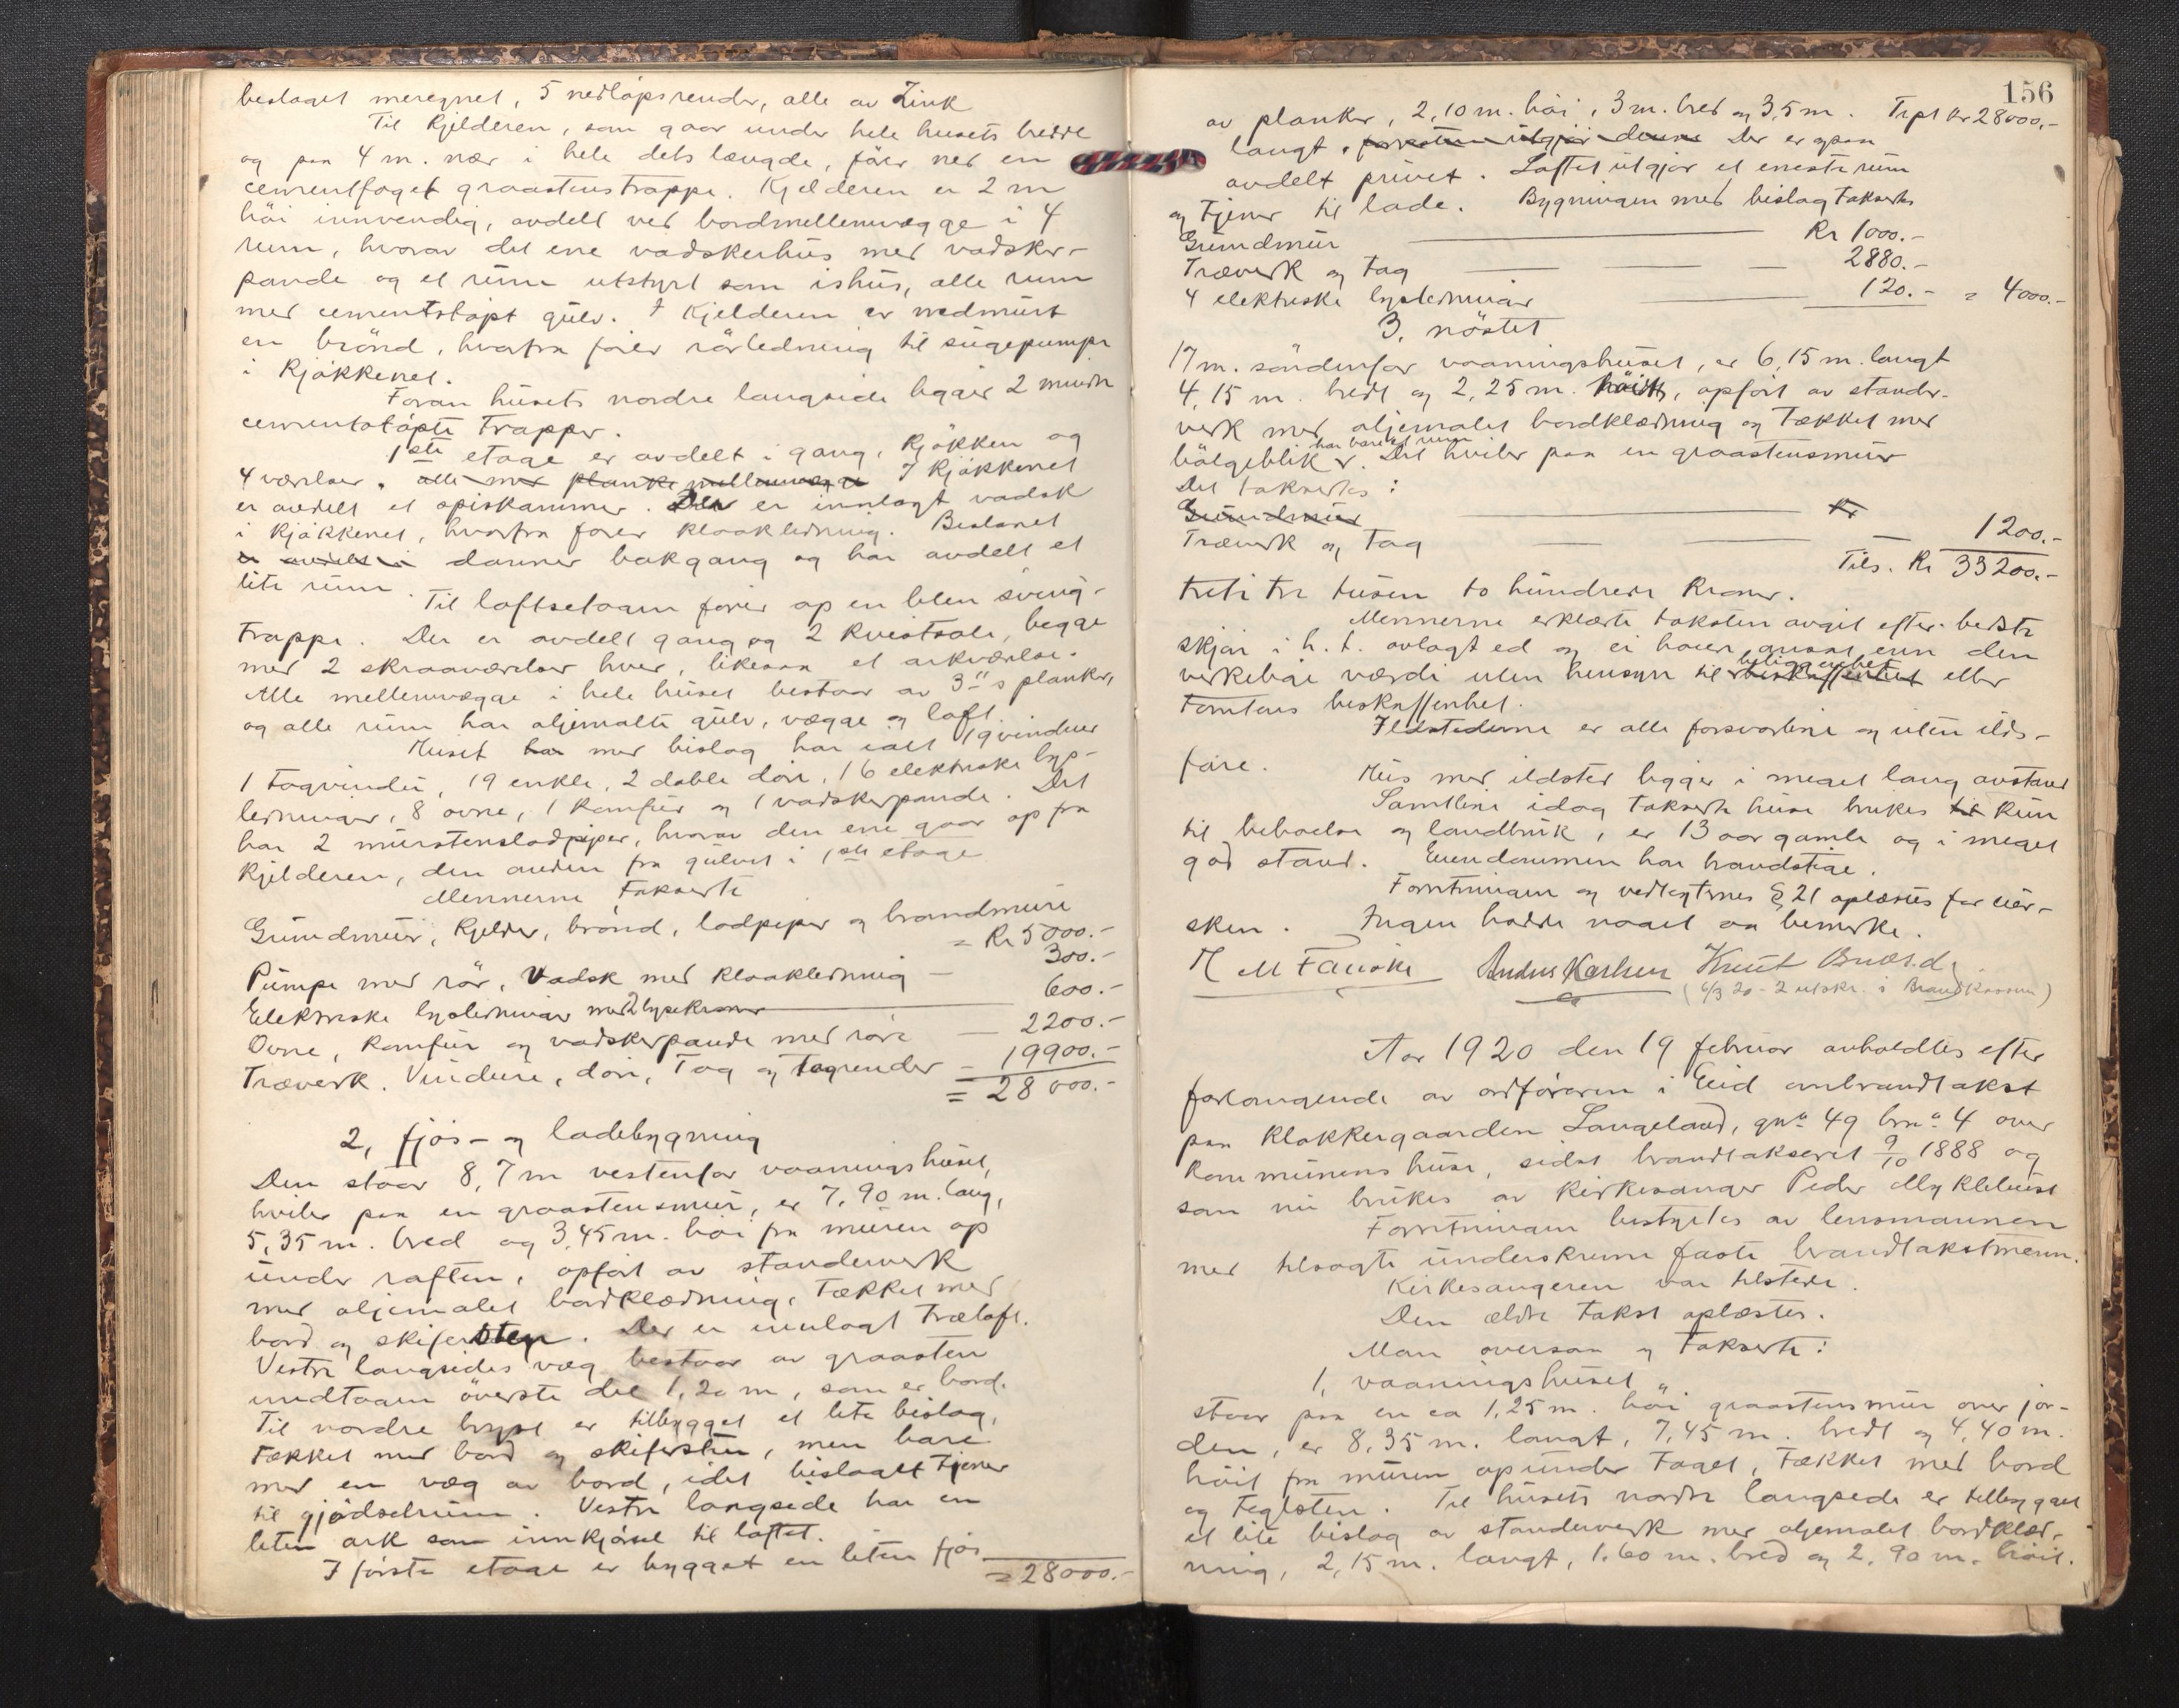 beslaget meregnet, 5 nedløpsrender, alle av Zink
Til Kjelderen, som gaar under hele husets bredde
og paa 4 m. nær i hele dets længde, fører ned en
cementfoget graastenstrappe. Kjelderen er 2 m
høi innvendig, avdelt ved bordmellemvægge i 4
rum, hvorav det ene vadskerhus med vadsker-
pande og et rum utstyrt som ishus, alle rum
med cementstøpt gulv. I Kjelderen er nedmurt
en brønd, hvorfra fører rørledning til sugepumpe
i Kjøkkenet.
Foran husets nordre langside ligger 2 mindre
cementstøpte trapper.
1ste etage er avdelt i gang, Kjøkken og
4 værelser. alle med planke mellemvægge I Kjøkkenet
er avdelt et spiskammer. Der er innlagt vadsk
i Kjøkkenet, hvorfra fører kloakledning. Beslaget
er avdelt i danner bakgang og har avdelt et
lite rum.
Til loftsetagen fører op en liten sving-
trappe. Der er avdelt gang og 2 Kvistsale, begge
med 2 skraaværelser hver, likesaa et arkværelse.
Alle mellemvægge i hele huset bestaar av 3"s planker,
og alle rum har oljemalte gulv, vægge og loft.
Huset har med bislag har ialt 19 vinduer
1 tagvindu, 19 enkle, 2 doble døre, 16 elektriske lys-
ledninger, 8 ovne, 1 Komfur og 1 vadskerpande. Det
har 2 murstenslodpiper, hvorav den ene gaar op fra
Kjelderen, den anden fra gulvet i 1ste etage
Mennerne takserte
Grundmur, Kjelder, brønd, lodpiper og brandmure
= Kr 5000.-
Pumpe med rør, Vadsk med kloakledning — 300.-
Elektriske lysledninger med 2 lysekroner — 600.-
Ovne, Komfur og vadskerpande med røre — 2200.-
Træverk. Vinduer, døre, Tag og tagrender — 19900.-
= 28000.-
2, fjøs- og ladebygning
Den staar 8,7 m vestenfor vaaningshuset,
hviler paa en graastensmur, er 7,90 m. lang,
5,35 m. bred og 3,45 m. høi fra muren op
under raften, opført av standerverk
med oljemalet bordklædning, tækket med
bord og skifersten. Der er innlagt træloft.
Vestre langsides væg bestaar av graasten
undtagen øverste del 1,20 m, som er bord.
Til nordre bryst er tilbygget et lite bislag,
tækket med bord og skifersten, men bare
med en væg av bord, idet bislaget tjener
til gjødselrum. Vestre langside har en
liten ark som innkjørsel til loftet.
I første etage er bygget en liten fjøs
= 28000.-
156
av planker, 2,10 m. høi, 3 m. bred og 3,5 m. Trpt Kr 28000,-
langt. forresten utgjør denne Der er ogsaa
avdelt privet. Loftet utgjør et eneste rum
og tjener til lade. Bygningen med bislag takseres
Grundmur — Kr 1000.-
Træverk og tag — 2880.-
4 elektriske lysledninger — 120.- = 4000.-
3, nøstet
17 m. søndenfor vaaningshuset, er 6,15 m. langt
4,15 m. bredt og 2,25 m. høit, opført av stander-
verk med oljemalet bordklædning og tækket med
har bare et rum
bølgeblik. Det hviler paa en graastensmur
Det takseres:
Grundmur — Kr
Træverk og Tag — 1200.-
Tils. Kr 33200.-
treti tre tusen to hundrede Kroner.
Mennerne erklærte taksten avgit efter beste
skjøn i h. t. avlagt ed og ei høiere ansat enn den
beliggenhet
virkelige værdi uten hensyn til beskaffenhet eller
tomtens beskaffenhet.
Ildstederne er alle forsvarlige og uten ilds-
fare.
Hus med ildsted ligger i meget lang avstand
Samtlige idag takserte huse brukes til kun
til beboelse og landbruk, er 13 aar gamle og i meget
god stand. Eiendommen har brandstige.
Forretningen og vedtegternes § 21 oplæstes for eier-
sken. Ingen hadde noget aa bemerke.
H M Fauske Anders Karlsen Knut
(6/3 20 - 2 utskr. i Brandkassen)
Aar 1920 den 19 februar avholdtes efter
forlangende av ordføreren i Eid ombrandtakst
paa Klokkergaarden Langeland, gno 49 brno 4 over
Kommunens huse, sidst brandtakseret 9/10 1888 og
som nu brukes av Kirkesanger Peder Myklebust
Forretningen bestyrtes av lensmannen
med tilsagte underskrevne faste brandtakstmenn.
Kirkesangeren var tilstede.
Den ældre takst oplæstes.
Man oversaa og takserte:
1, vaaningshuset
staar paa en ca 1,25 m. høi graastensmur over jor-
den, er 8,35 m. langt, 7,45 m. bredt og 4,40 m.
høit fra muren op under taget, tækket med bord
og teglsten. Til husets nordre langside er tilbygget
et lite bislag av standerverk med oljemalet bordklæd-
ning, 2,15 m. langt, 1.60 m. bred og 2,90 m. høit.